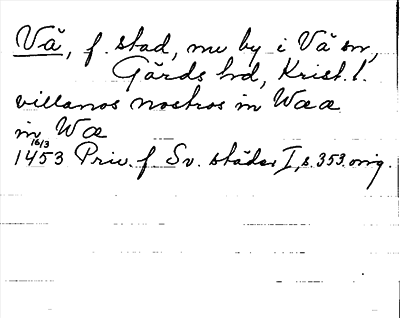 Vä, f. stad, nu by i Vä sn,
Gärds hd, Krist. l.
villanos nostros in Wææ
in Wæ
16/3
1453 Priv. f Sv. städer I, s. 353. orig.